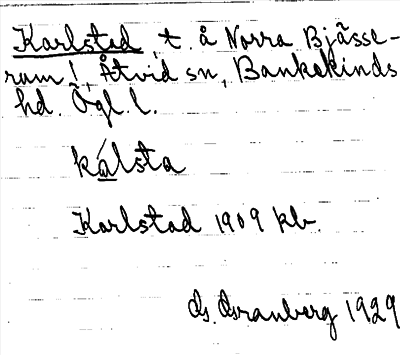 Karlstad, t. å Norra Bjässe-
ram !, Åtvid sn, Bankekinds
hd. Ögl. l.
kálsta
Karlstad 1909 kb.
Gs. Granberg 1929